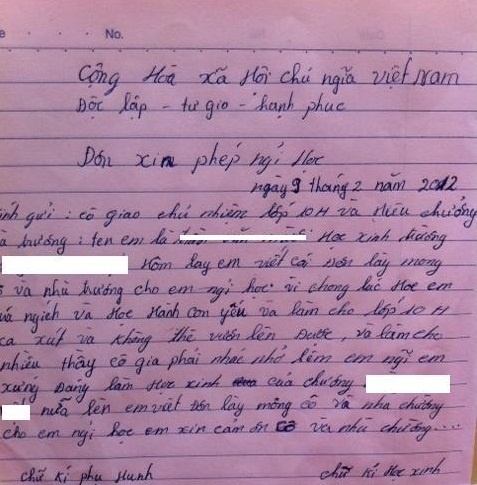 No.
Cộng Hòa xã Hội chủ ngĩa việt Nam
Độc lập - tự gio - hạnh phuc
Đơn xin phép ngỉ Học
ngày 9 tháng 2 năm 2012
ính gửi : cô giao chủ nhiệm lớp 10 H và Hiệu chưởng
à trường : ten em là Học xinh trường
Hôm lay em viết cái đơn lày mong
và nhà trường cho em ngỉ học vì chong lúc Học em
uá ngịch và Học Hành con yếu và làm cho lớp 10 H
ca xút và không thể vươn lên được, và làm cho
nhiều thầy cô gia phải nhac nhở lêm em ngĩ em
xưng đáng làm Học xinh của chường
nữa lên em viết đơn lày mông cô và nha chường
cho em ngỉ học em xin cảm ơn cô và nhà chường....
chữ kí phu Hunh chữ kí Học xinh